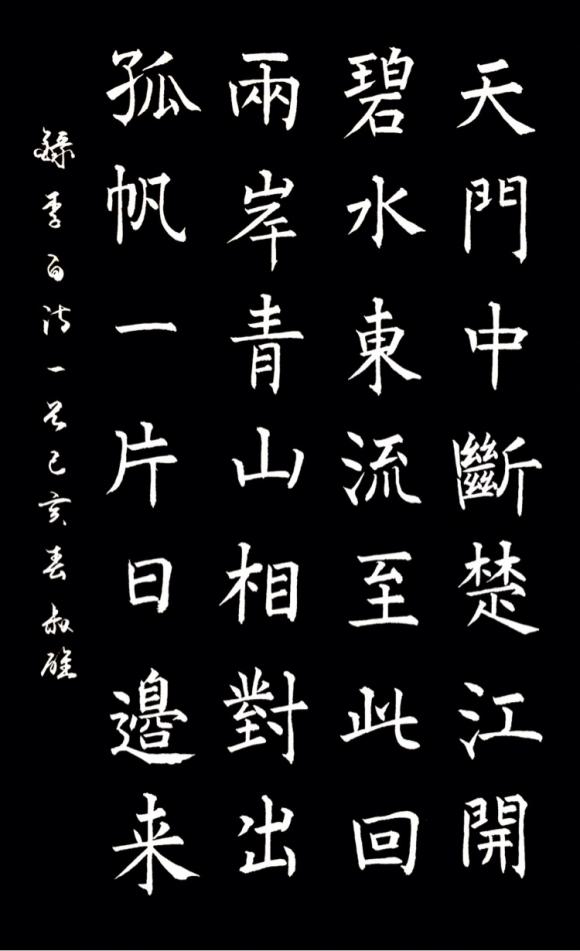 天門中斷楚江開
碧水東流至此回
兩岸青山相對出
孤帆一片日邊来
錄李白詩一首己亥春叔